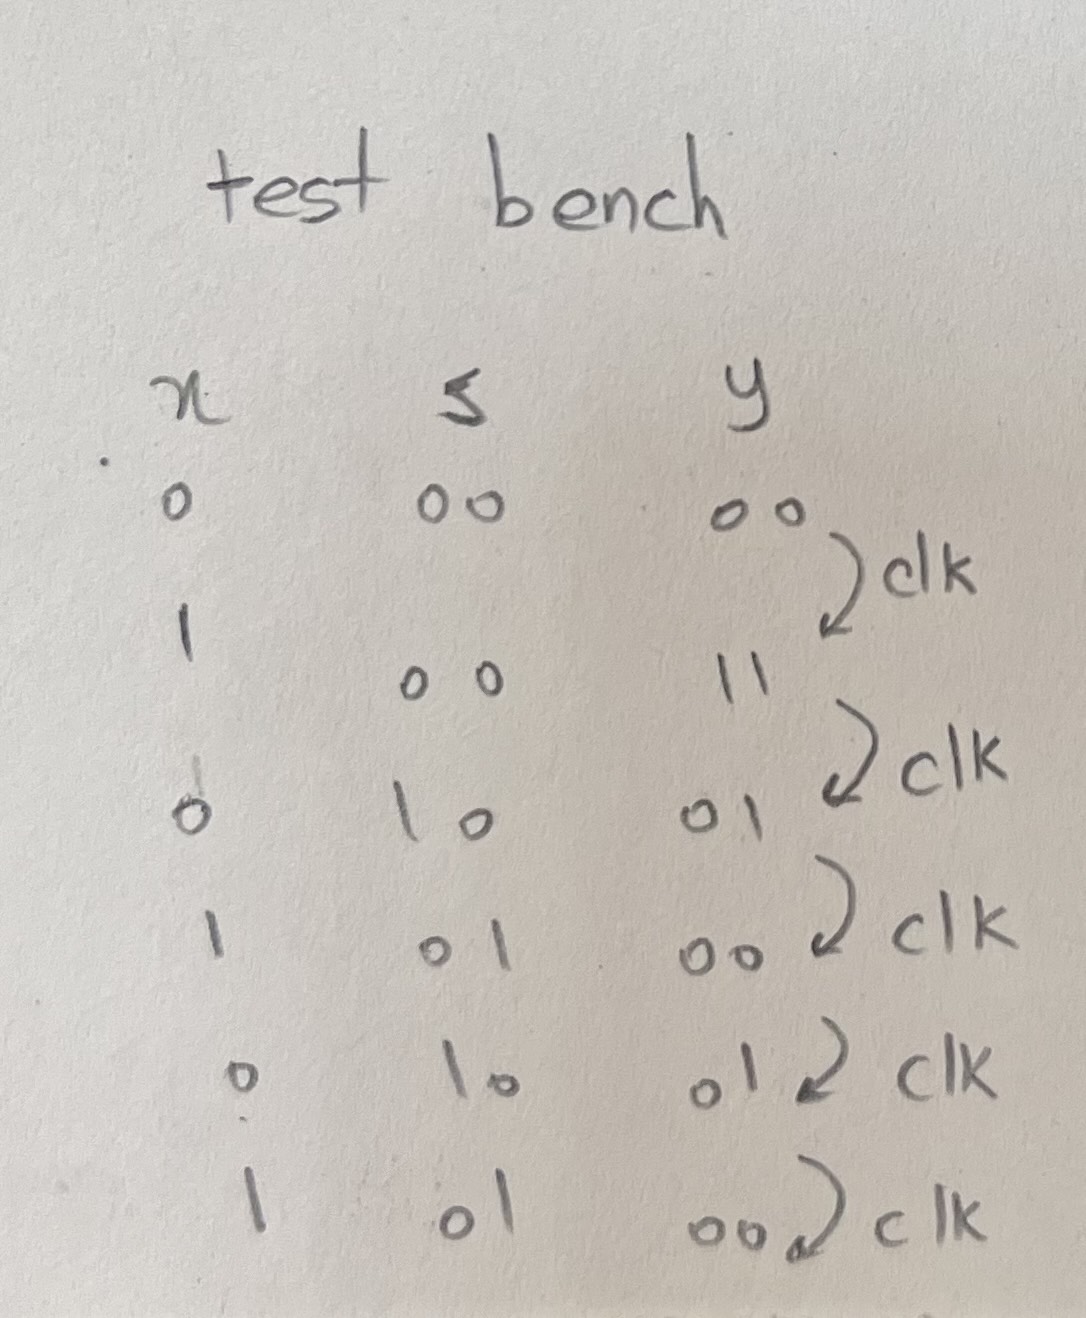 test bench
x s y
0 00 00
clk
1 00 11
clk
0 10 01
clk
1 01 00
clk
0 10 01
clk
1 01 00